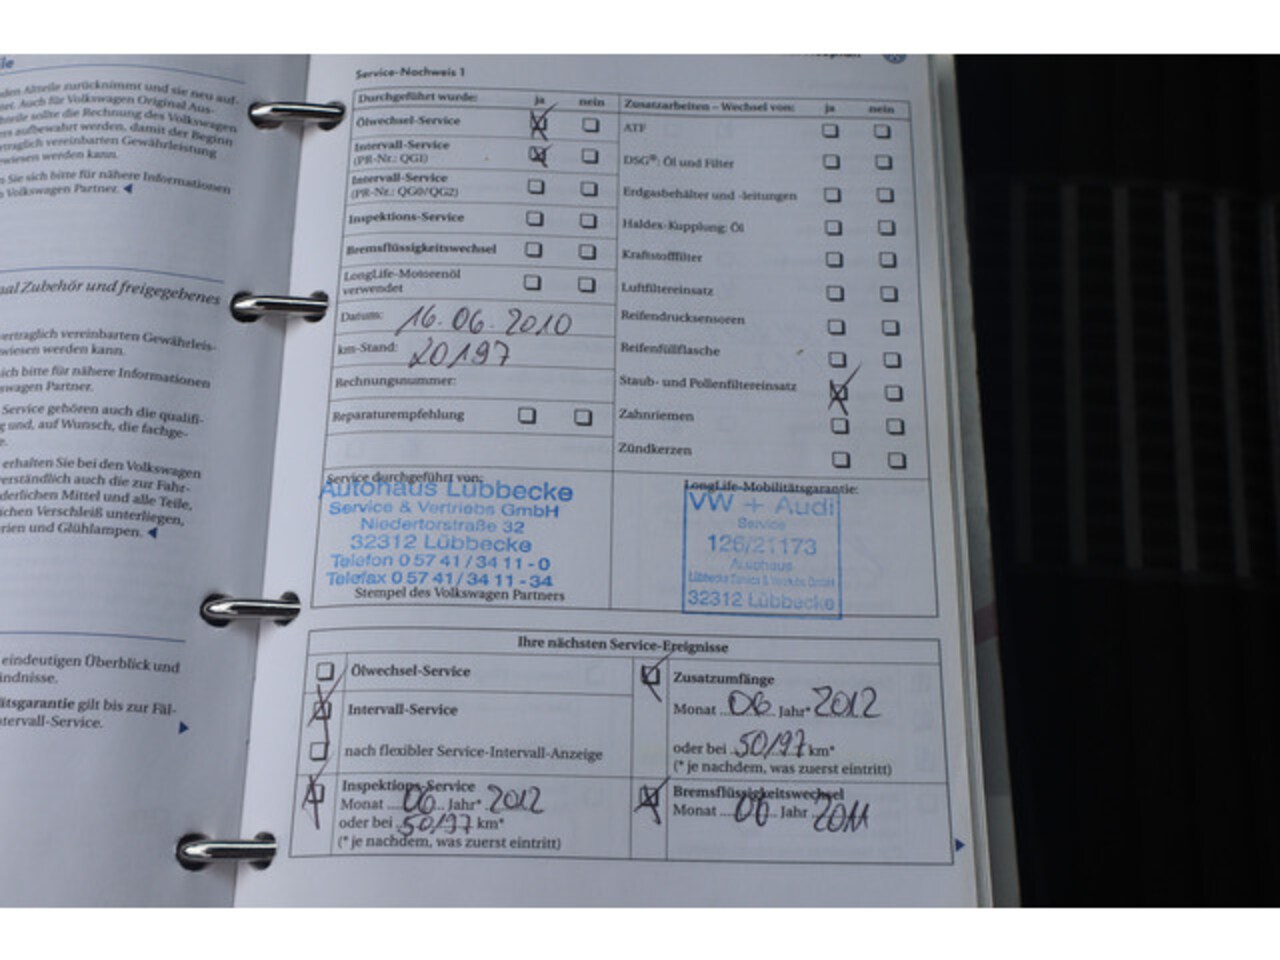 den Altteile zurücknimmt und sie neu auf-
Auch für Volkswagen Original Aus-
sollte die Rechnung des Volkswagen
aufbewahrt werden, damit der Beginn
vertraglich vereinbarten Gewährleistung
werden kann.
Sie sich bitte für nähere Informationen
Volkswagen Partner.
Zubehör und freigegebenes
vereinbarten Gewährleis-
wiesen werden kann.
sich bitte für nähere Informationen
Partner.
Service gehören auch die qualifi-
und, auf Wunsch, die fachge-
erhalten Sie bei den Volkswagen
auch die zur Fahr-
Mittel und alle Teile,
Verschleiß unterliegen,
und Glühlampen.
eindeutigen Überblick und
gilt bis zur Fäl-
Service-Nachweis 1
Durchgeführt wurde: ja nein
Ölwechsel-Service
Intervall-Service
(PR-Nr.: QG1)
Intervall-Service
(PR-Nr.: QG0/QG2)
Inspektions-Service
Bremsflüssigkeitswechsel
LongLife-Motorenöl
verwendet
Datum: 16.06.2010
km-Stand: 20197
Rechnungsnummer:
Reparaturempfehlung
Zusatzarbeiten – Wechsel von: ja nein
ATF
DSG®: Öl und Filter
Erdgasbehälter und -leitungen
Haldex-Kupplung: Öl
Kraftstofffilter
Luftfiltereinsatz
Reifendrucksensoren
Reifenfüllflasche
Staub- und Pollenfiltereinsatz
Zahnriemen
Zündkerzen
Service durchgeführt von:
Autohaus Lübbecke
Service & Vertriebs GmbH
Niedertorstraße 32
32312 Lübbecke
Telefon 0 57 41 / 34 11 - 0
Telefax 0 57 41 / 34 11 - 34
Stempel des Volkswagen Partners
LongLife-Mobilitätsgarantie:
VW + Audi
Service
126/21173
Autohaus
Lübbecke Service & Vertriebs GmbH
32312 Lübbecke
Ihre nächsten Service-Ereignisse
Ölwechsel-Service
Intervall-Service
nach flexibler Service-Intervall-Anzeige
Inspektions-Service
Monat 06 Jahr* 2012
oder bei 50197 km*
(* je nachdem, was zuerst eintritt)
Zusatzumfänge
Monat 06 Jahr* 2012
oder bei 50197 km*
(* je nachdem, was zuerst eintritt)
Bremsflüssigkeitswechsel
Monat 06 Jahr 2011